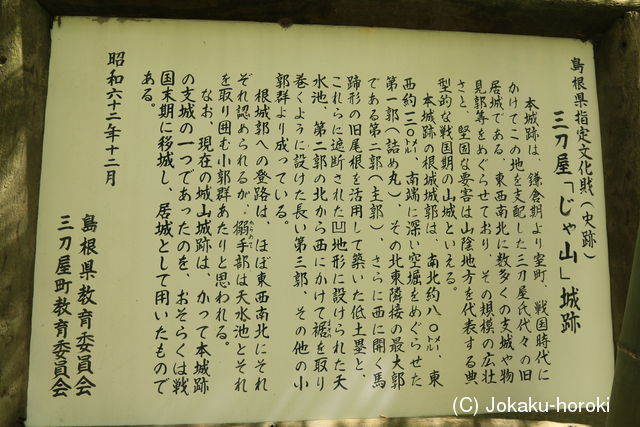 島根県指定文化財（史跡）
三刀屋「じゃ山」城跡
本城跡は、鎌倉期より室町、戦国時代に
かけてこの地を支配した三刀屋氏代々の旧
居城である。東西南北に数多くの支城や物
見郭等をめぐらせており、その規模の広壮
さと、堅固な要害は山陰地方を代表する典
型的な戦国期の山城といえる。
本城跡の根城城郭は、南北約八〇㍍、東
西約一二〇㍍、南端に深い空堀をめぐらせた
第一郭（詰め丸）、その北東隣接の最大郭
である第二郭（主郭）、さらに西に開く馬
蹄形の旧尾根を活用して築いた低土塁と、
これらに遮断された凹地形に設けられた天
水池、第二郭の北から西にかけて裾を取り
巻くように設けた長い第三郭、その他の小
郭群より成っている。
根城郭への登路は、ほぼ東西南北にそれ
ぞれ認められるが、搦手部は天水池とそれ
を取り囲む小郭群あたりと思われる。
なお、現在の城山城跡は、かつて本城跡
の支城の一つであったのを、おそらくは戦
国末期に移城し、居城として用いたもので
ある。
昭和六十二年十二月
島根県教育委員会
三刀屋町教育委員会
(C) Jokaku-horoki